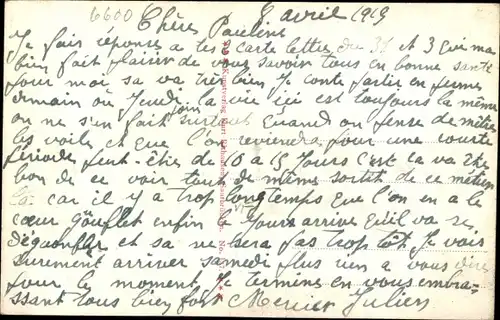 6600
6 avril 1919
Chère Pauline
Je fais réponse a tes 2 carte lettre du 31 et 3 qui ma
bien fait plaisir de vous savoir tous en bonne santé
pour moi sa va très bien Je conte partir en perme
demain ou Jeudi la vie ici est toujours la même
on ne s'en fait surtout quand on pense de mètre
les voile et que l'on reviendra pour une courte
période peut-être de 10 a 15 Jours c'est la va être
bon de ce voir tout de même sortit de ce métier
la car il y a trop longtemps que l'on en a le
cœur gouflet enfin le Jours arrive qu'il va se
dégonfler et sa ne sera pas trop tôt Je vais
surement arriver samedi plus rien a vous dire
pour le moment Je termine en vous embra-
ssant tous bien fort Mercier Julien